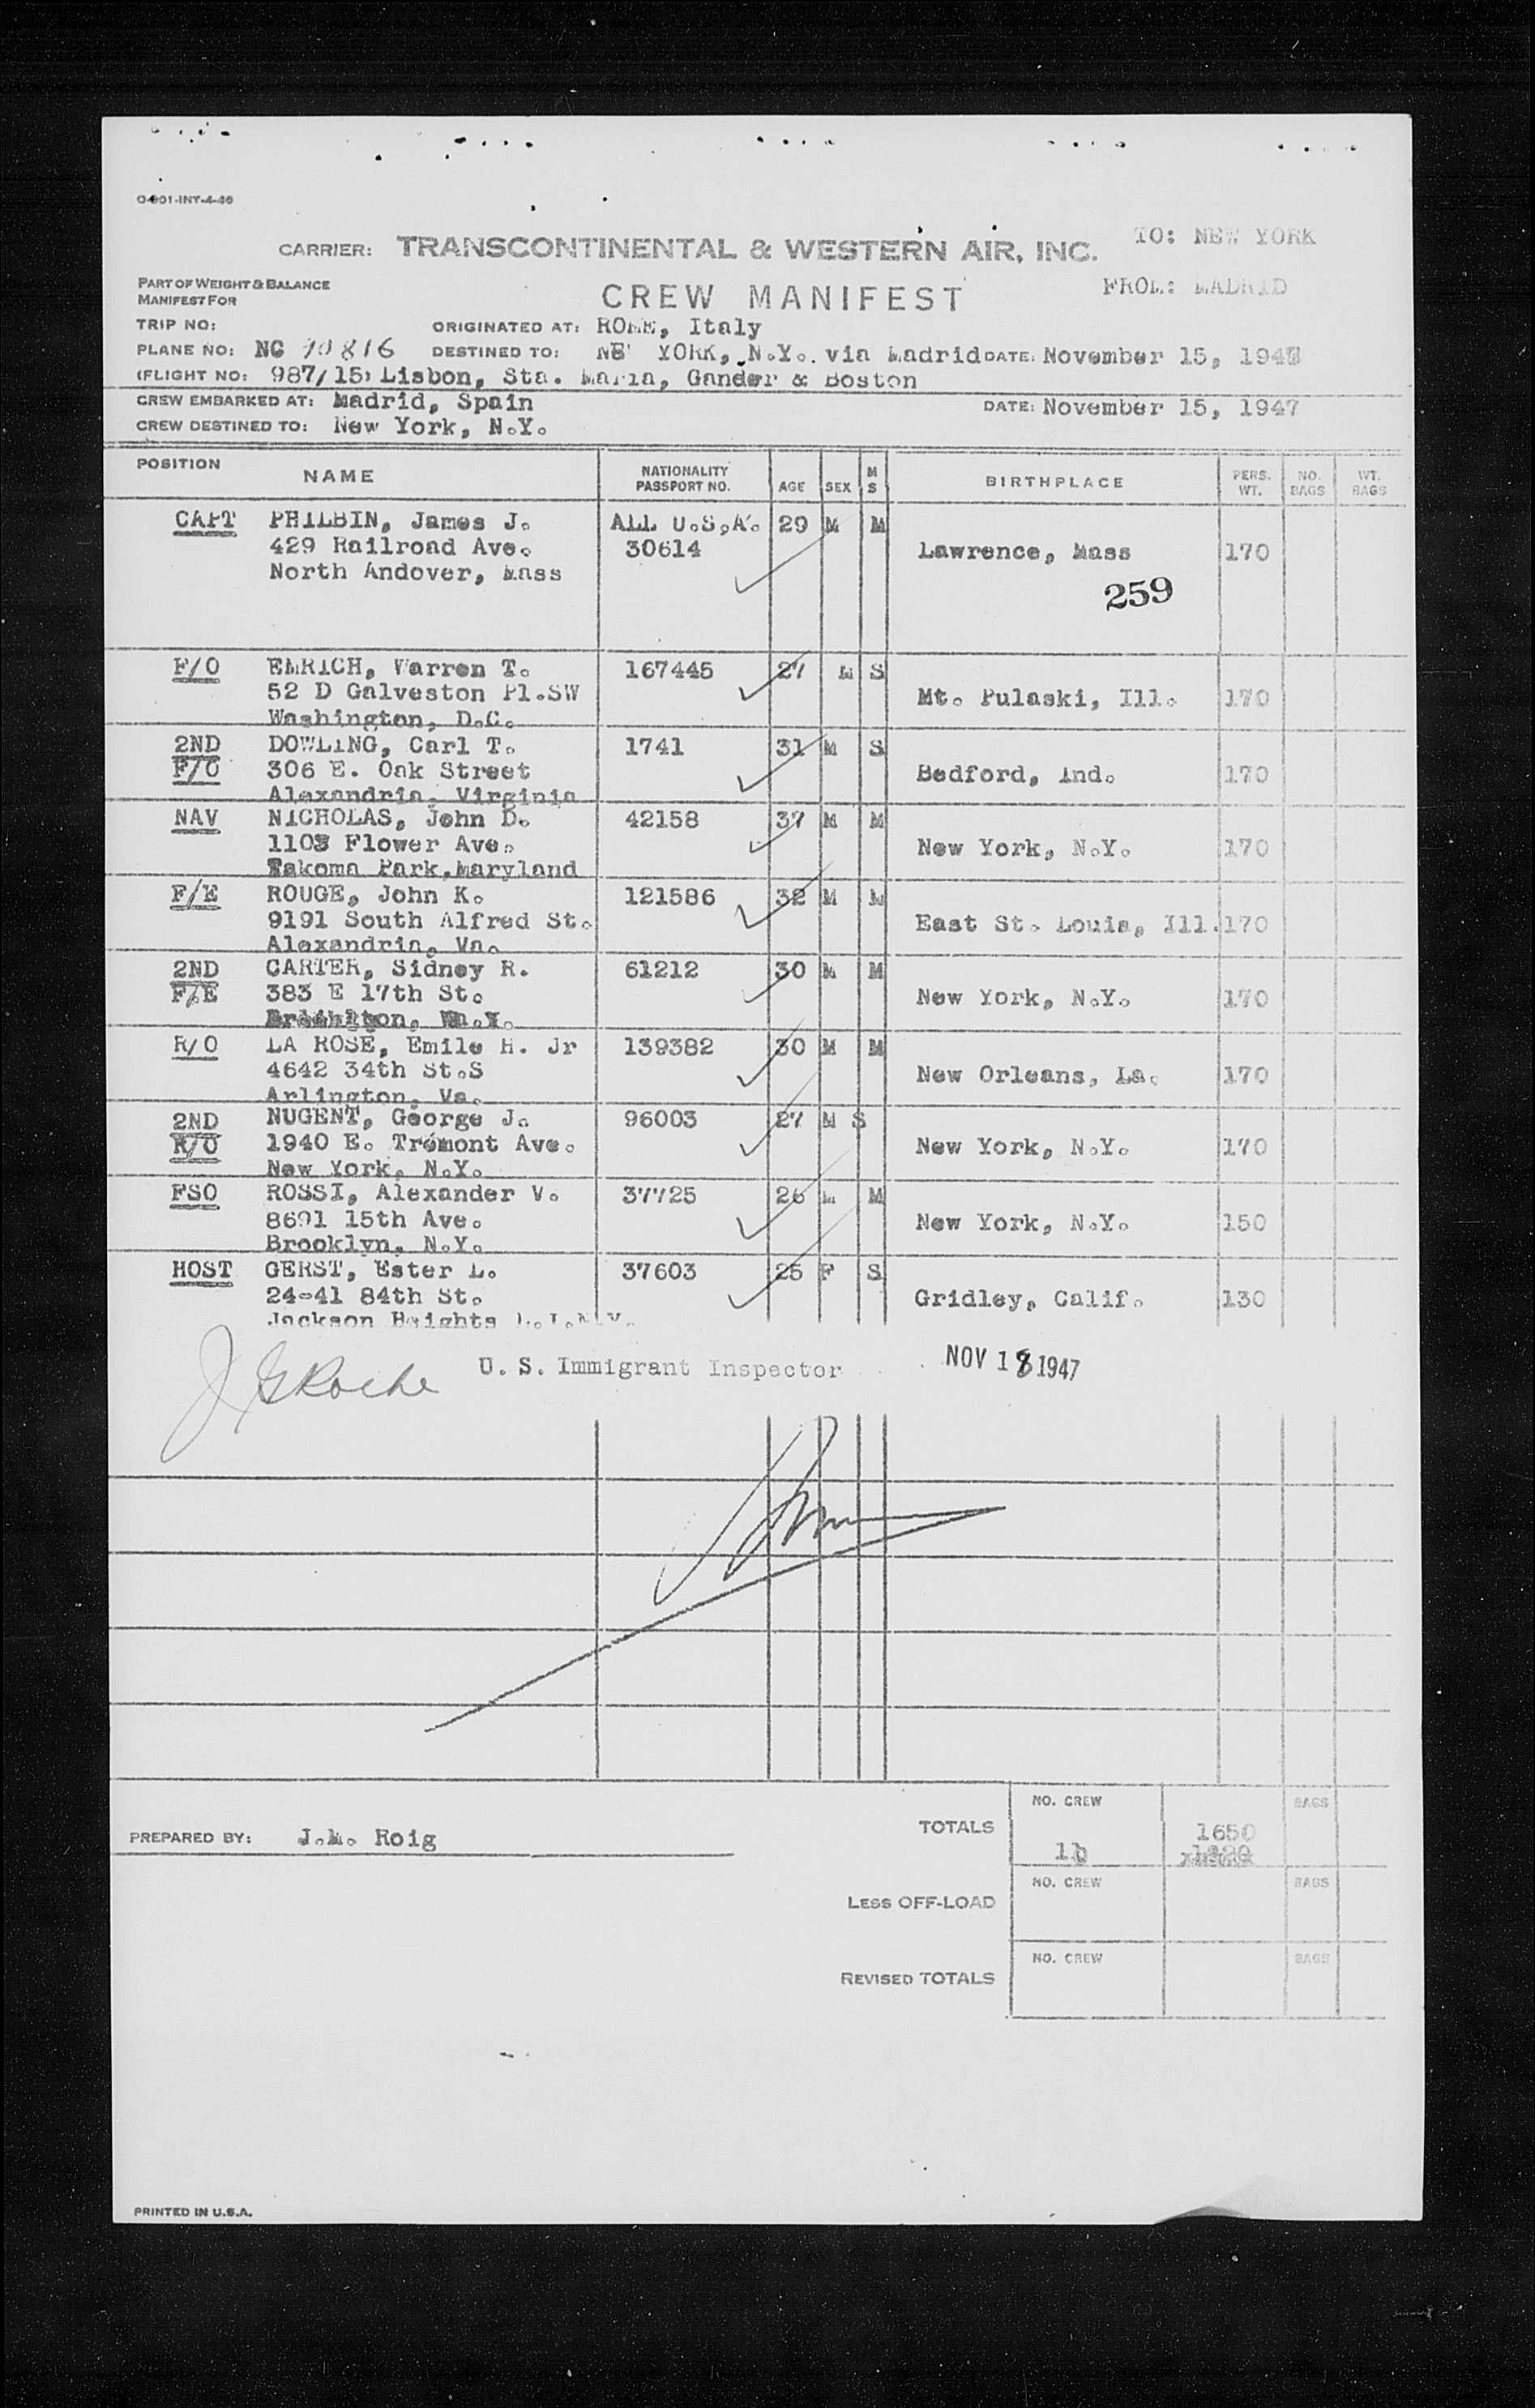 O-901-INT-4-46
TO: NEW YORK
CARRIER: TRANSCONTINENTAL & WESTERN AIR, INC.
FROM: MADRID
PART OF WEIGHT & BALANCE
MANIFEST FOR
CREW MANIFEST
TRIP NO: ORIGINATED AT: ROME, Italy
PLANE NO: NC 90816 DESTINED TO: NEW YORK, N.Y. via Madrid DATE: November 15, 1947
(FLIGHT NO: 987/15) Lisbon, Sta. Maria, Gander & Boston
CREW EMBARKED AT: Madrid, Spain DATE: November 15, 1947
CREW DESTINED TO: New York, N.Y.
POSITION NAME NATIONALITY PASSPORT NO. AGE SEX M S BIRTHPLACE PERS. WT. NO. BAGS WT. BAGS
CAPT PHILBIN, James J. ALL U.S.A. 29 M M
429 Railroad Ave. 30614 Lawrence, Mass 170
North Andover, Mass
259
F/O EMRICH, Warren T. 167445 27 M S
52 D Galveston Pl.SW Mt. Pulaski, Ill. 170
Washington, D.C.
2ND DOWLING, Carl T. 1741 31 M S
F/O 306 E. Oak Street Bedford, Ind. 170
Alexandria, Virginia
NAV NICHOLAS, John D. 42158 37 M M
1103 Flower Ave. New York, N.Y. 170
Takoma Park,Maryland
F/E ROUGE, John K. 121586 32 M M
9191 South Alfred St. East St. Louis, Ill. 170
Alexandria, Va.
2ND CARTER, Sidney R. 61212 30 M M
F/E 383 E 17th St. New York, N.Y. 170
N.Y.
R/O LA ROSE, Emile H. Jr 139382 30 M M
4642 34th St.S New Orleans, La. 170
Arlington, Va.
2ND NUGENT, George J. 96003 27 M S
R/O 1940 E. Tremont Ave. New York, N.Y. 170
New York, N.Y.
FSO ROSSI, Alexander V. 37725 26 M M
8691 15th Ave. New York, N.Y. 150
Brooklyn, N.Y.
HOST GERST, Ester L. 37603 25 F S
24-41 84th St. Gridley, Calif. 130
Jackson Heights L.I.N.Y.
J G Roche U. S. Immigrant Inspector NOV 18 1947
TOTALS NO. CREW BAGS
1650
PREPARED BY: J.M. Roig
LESS OFF-LOAD NO. CREW BAGS
REVISED TOTALS NO. CREW BAGS
PRINTED IN U.S.A.